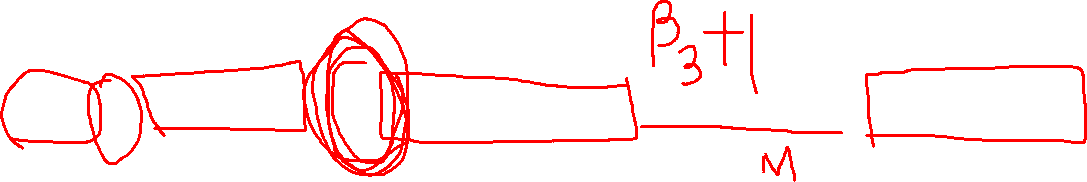 β3+1
M